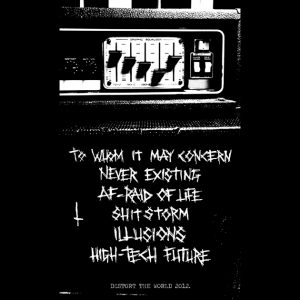 TO WHOM IT MAY CONCERN
NEVER EXISTING
AF-RAID OF LIFE
SHITSTORM
ILLUSIONS
HIGH-TECH FUTURE
DISTORT THE WORLD 2012.